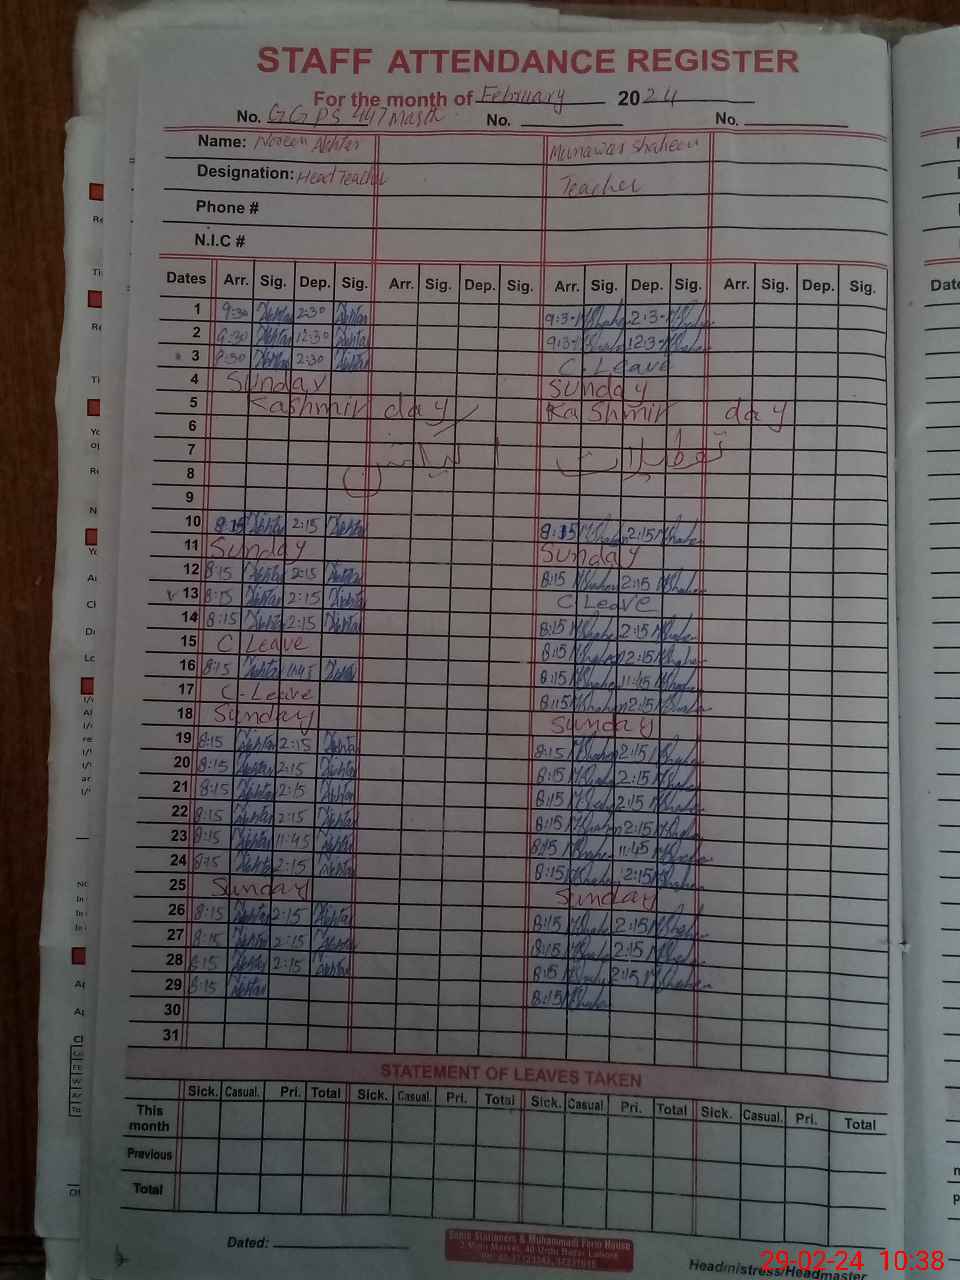 STAFF ATTENDANCE REGISTER
For the month of February 2024
No. GGPS 447 No. No.
Name: Noreen Akhtar Munawar Shaheen
Designation: Head Teacher Teacher
Phone #
N.I.C #
Dates Arr. Sig. Dep. Sig. Arr. Sig. Dep. Sig. Arr. Sig. Dep. Sig. Arr. Sig. Dep. Sig.
1 9:30 Akhtar 2:30 Akhtar 9:3- M.Shaheen 2:3- M.Shaheen
2 9:30 Akhtar 12:30 Akhtar 9:3- M.Shaheen 12:3- M.Shaheen
3 9:30 Akhtar 2:30 Akhtar C. Leave
4 Sunday Sunday
5 Kashmir day Kashmir day
6
7 تعطیلات
8
9
10 8:15 Akhtar 2:15 Akhtar 8:15 M.Shaheen 2:15 M.Shaheen
11 Sunday Sunday
12 8:15 Akhtar 2:15 Akhtar 8:15 M.Shaheen 2:15 M.Shaheen
13 8:15 Akhtar 2:15 Akhtar C. Leave
14 8:15 Akhtar 2:15 Akhtar 8:15 M.Shaheen 2:15 M.Shaheen
15 C Leave 8:15 M.Shaheen 2:15 M.Shaheen
16 8:15 Akhtar 11:45 Akhtar 8:15 M.Shaheen 11:45 M.Shaheen
17 C-Leave 8:15 M.Shaheen 2:15 M.Shaheen
18 Sunday Sunday
19 8:15 Akhtar 2:15 Akhtar 8:15 M.Shaheen 2:15 M.Shaheen
20 8:15 Akhtar 2:15 Akhtar 8:15 M.Shaheen 2:15 M.Shaheen
21 8:15 Akhtar 2:15 Akhtar 8:15 M.Shaheen 2:15 M.Shaheen
22 8:15 Akhtar 2:15 Akhtar 8:15 M.Shaheen 2:15 M.Shaheen
23 8:15 Akhtar 11:45 Akhtar 8:15 M.Shaheen 11:45 M.Shaheen
24 8:15 Akhtar 2:15 Akhtar 8:15 M.Shaheen 2:15 M.Shaheen
25 Sunday Sunday
26 8:15 Akhtar 2:15 Akhtar 8:15 M.Shaheen 2:15 M.Shaheen
27 8:15 Akhtar 2:15 Akhtar 8:15 M.Shaheen 2:15 M.Shaheen
28 8:15 Akhtar 2:15 Akhtar 8:15 M.Shaheen 2:15 M.Shaheen
29 8:15 Akhtar 8:15 M.Shaheen
30
31
STATEMENT OF LEAVES TAKEN
Sick. Casual. Pri. Total Sick. Casual. Pri. Total Sick. Casual Pri. Total Sick. Casual. Pri. Total
This month
Previous
Total
Dated:
Sonic Stationers & Muhammadi Form House
2-Main Market, 40-Urdu Bazar Lahore
Headmistress/Headmaster
29-02-24 10:38